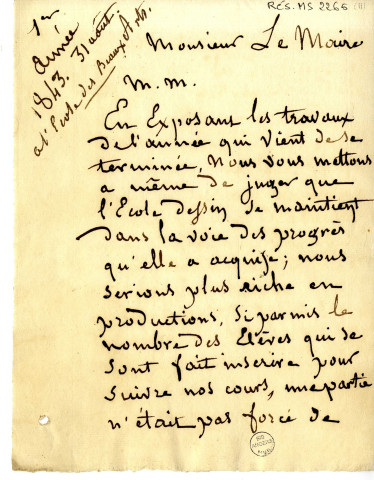 RÉS. MS 2265 (11)
1er
année
1843. 31 août.
a l'Ecole des Beaux Arts.
Monsieur Le Maire
M. M.
En Exposant les travaux
de l'année qui vient de se
terminée, Nous vous mettons
a même de juger que
l'Ecole dessin se maintient
dans la voie des progrès
qu'elle a acquise; nous
serions plus riche en
productions, si parmis le
nombre des Elèves qui se
sont fait inscrire pour
suivre nos cours, une partie
n'était pas forcé de